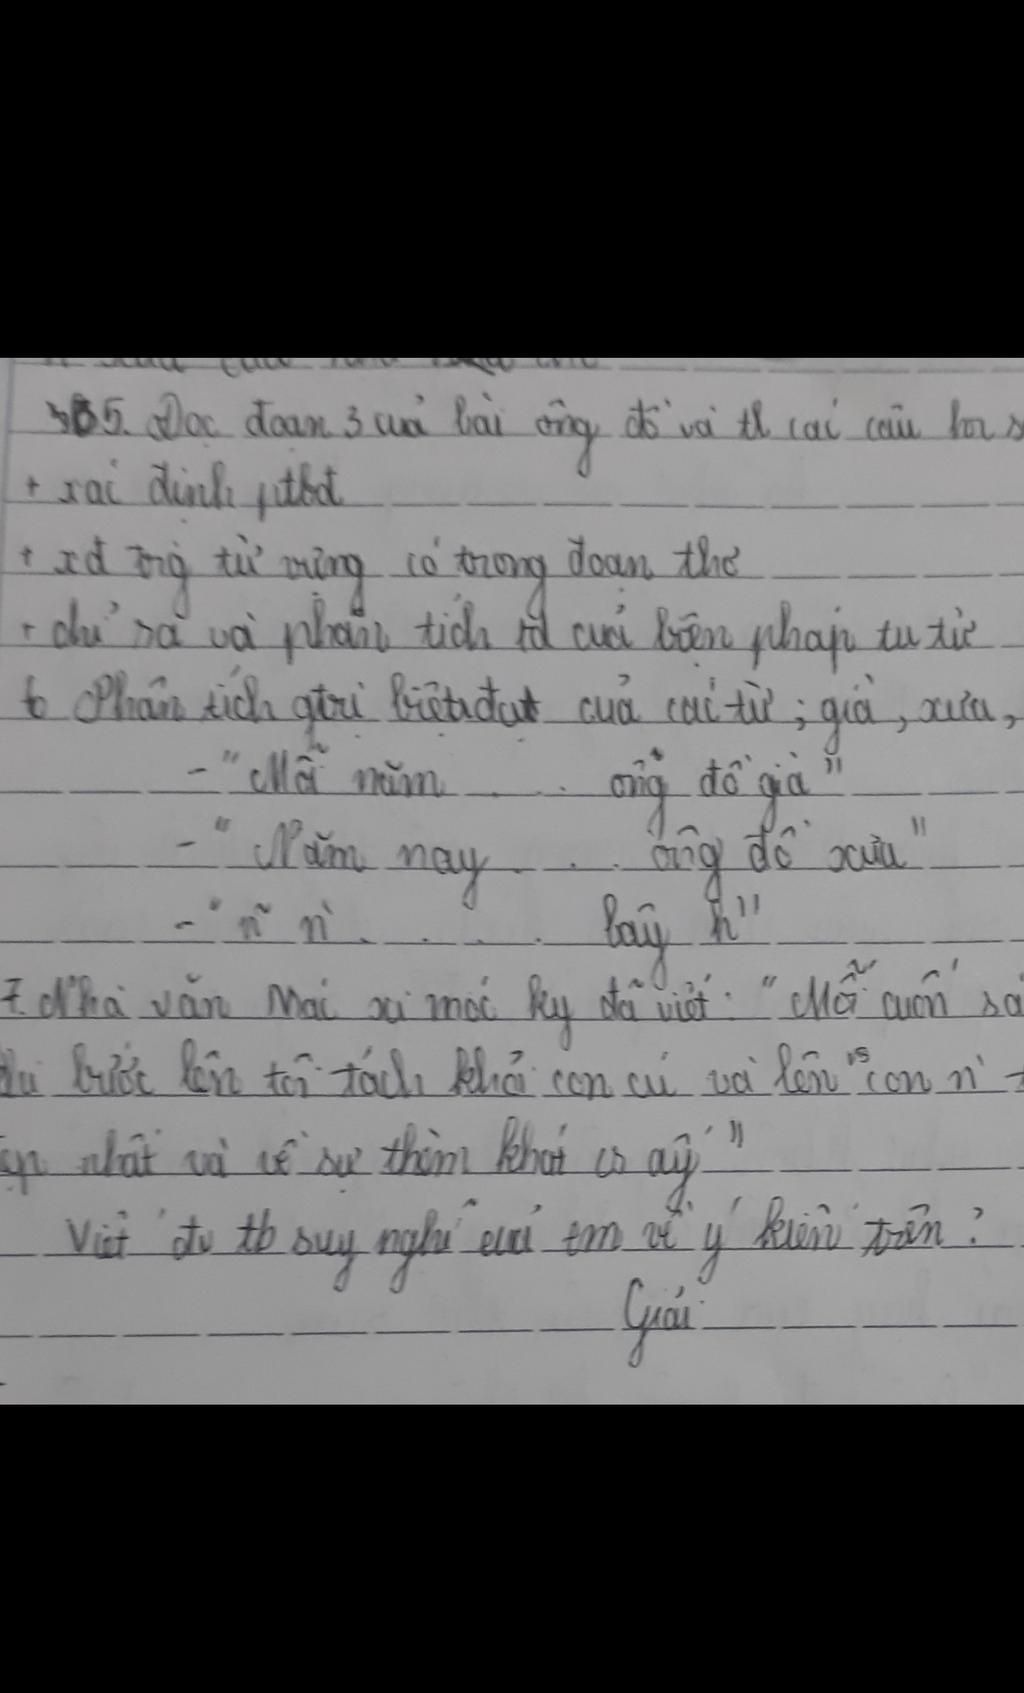 5. Đọc đoạn 3 của bài ông đồ và tl các câu hỏi s
+ xác định ptbđ
+ xđ trg từ vựng có trong đoạn thơ
+ chỉ ra và phân tích td của biện pháp tu từ
6 Phân tích gtrị biểu đạt của các từ; già, xưa,
- "Mỗi năm . . . ông đồ già"
- "Năm nay . . . ông đồ xưa"
- "n~ n` . . . . bây h"
7. Nhà văn Mác xi mơ ky đã viết: "Mỗi cuốn sá
bước lên tôi tách khỏi con cú và lên con n`
nhất và về sự thèm khát cs ấy"
Viết đv tb suy nghĩ của em về ý kiến trên?
Giải